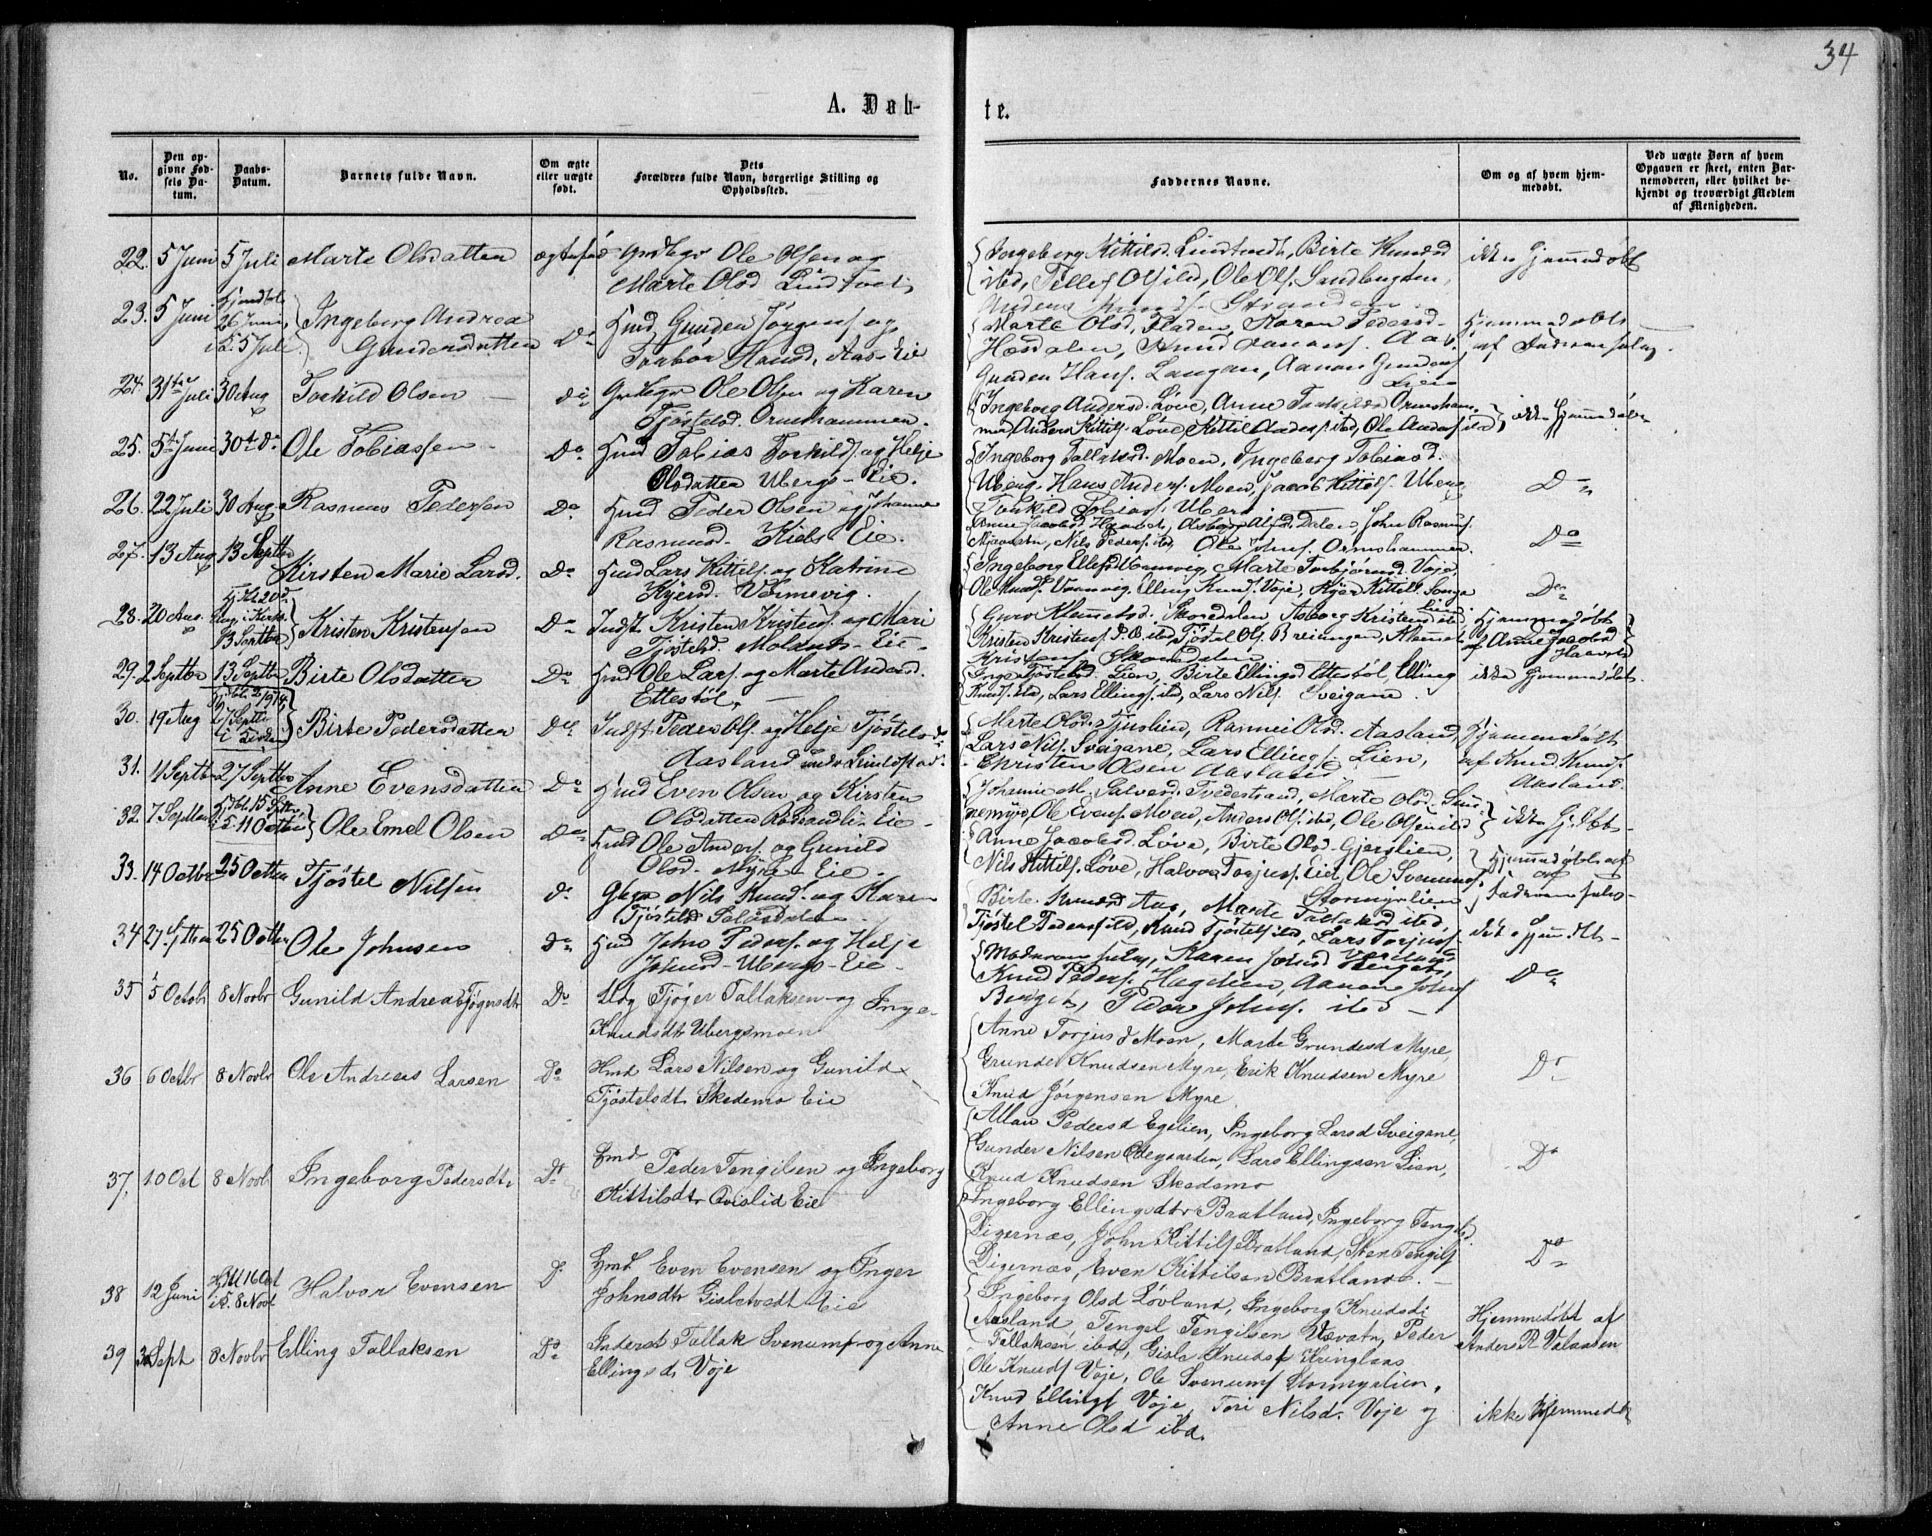 34
A. Døb-
te.
No.
Den op-
givne Fød-
sels Da-
tum.
Daabs-
Datum.
Barnets fulde Navn.
Om ægte
eller uægte
født.
Dets
Forældres fulde Navn, borgerlige Stilling og
Opholdssted.
Faddernes Navne.
Om og af hvem hjem-
medøbt.
Ved uægte Børn af hvem
Opgaven er skeet, enten Bar-
nemoderen, eller hvilket be-
kjendt og troværdigt Medlem
af Menigheden.
22. 5 Juni 5 Juli Marte Olsdatter ægtefød Ole Olsen og
Marte Olsd Lindtveit
Ingeborg Kittilsd. Lindtveit, Birte Knudsd
ibd, Tellef Olsf ibd, Ole Olsf. Sandbugten,
Knudsf. Stranden
ikke Hjemmedøbt
23. 5 Juni
26 Juni,
i K. 5 Juli.
Ingeborg Andrea
Gundersdatter
Do
Hmd Gunder Jørgensf og
Hansd, Aas-Eie
Marte Olsd, Fladen, Karen Pedersd
Hæsdalen, Aas,
Gunder Hansf. Langan, Aanon Gundersf
Lien
Hjemmedøbt
af Faderen selv.
24. 31te Juli 30 Aug Torkild Olsen do Ole Olsen og Karen
Tjøstelsd. Ormshammer.
Ingeborg Andersd. Løve, Anne Ormsham-
mer Anders Kittilsf. Løve, Kittil Andersf. ibd, Ole Andersf ibd
ikke Hjemmedøbt
25. 5te Juni 30te Do Ole Tobiassen Do Hmd Tobias Torkildsf. og Helje
Olsdatter Ubergs-Eie.
Ingeborg Tallaksd. Moen, Ingeborg Tobiasd.
Uberg, Hans Andersf. Moen, Jacob Kittelsf. Uberg
Torkild Tobiasf. Uberg
Do
26. 22 Juli 30 Aug. Rasmus Pedersen Do Hmd Peder Olsen og Johanne
Rasmusd. Kiebs Eie.
Anne Jacobsd Dale John Rasmusf.
Nils Pedersf. ibd, Ole Johnsf. Ormshammer.
Do
27. 13 Aug 13 Septbr Kirsten Marie Larsd. Do Hmd Lars Kittilsf. og Katrine
Kjersd. Vormevig.
Ingeborg Ellefsd Vormevig, Marte Torbjørnsd. Voje,
Ole Knudsf. Vormevig, Elling Knudsf. Voje, Kjær Kittelsf. Songe
Do
28. 20 Aug.
Aug. i Kirke
13 Septbr
Kristen Kristensen Do Indst Kristen Kristensf. og Mari
Tjøstelsd. Molands-Eie
Skoredalen, Aaborg Kristensd ibd,
Kristen Kristensf. ibd, Tjøstel Olsf. Breiungen,
Kristensf Skoredalen
Hjemmedøbt
af Anne Jacobsd
29. 2 Septbr 13 Septbr Birte Olsdatter Do Hmd Ole Larsf. og Marte Andersd.
Ettestøl.
Inge Tjøstelsd. Lien, Birte Ellingsd Ettestøl, Elling
Knudsf. ibd, Lars Ellingsf. ibd, Lars Nilsf. Sveigane.
ikke Hjemmedøbt.
30. 19 Aug
27 Septbr
Birte Pedersdatter Do Indst Peder Olsf. og Helje Tjøstelsd
Aasland under
Marte Olsd. Tjuslien, Rannei Olsd. Aasland,
Lars Nilsf. Sveigane, Lars Ellingsf Lien,
Christen Olsen Aasland
Hjemmedøbt
af Knud Knudsf.
Aasland.
31. 4 Septbr 27 Septbr Anne Evensdatter Do Hmd Even Olsen og Kirsten
Olsdatter Eie
Johanne M. Halvorsd. Tvedestrand, Marte Olsd.
Ole Evensf. Moen, Anders Olsf ibd, Ole Olsen ibd
ikke Hj. Døbt.
32. 7 Septbr
Hjdbt. 15 Septbr
i K. 11 Octbr
Ole Emel Olsen Do Hmd Ole Andersf. og Gunild
Olsd. Myre-Eie.
Anne Jacobsd. Løve, Birte Olsd. Gjerslien,
Nils Kittilsf. Løve, Halvor Torjusf. Eie, Ole Svenumsf
Stormyrlien
Hjemmedøbt af
Faderen selv.
33. 14 Octbr 25 Octbr Tjøstel Nilsen do Nils Knudsf. og Karen
Tjøstelsd
Birte Knudsd Aas, Marte Tallaksd ibd,
Tjøstel Pedersf ibd, Knud Tjøstelsf ibd, Lars Torjusf.
ikke Hjemmedøbt.
34 27 Septbr 25 Octbr Ole Johnsen Do Hmd John Pedersf. og Helje
Johnsd-Ubergs-Eie.
Moderen selv, Karen Johnsd Berget,
Knud Pedersf. Hagelien, Aanon Johnsf
Berget, Peder Johnsf. ibd
Do
35 5 Octobr 8 Novbr Gunild Andrea Tjøgersdtr Do Tjøger Tallaksen og Inge
Knudsdtr Ubergsmoen
Anne Torjusd Moen, Marte Grundesd Myre,
Grunde Knudsen Myre, Erik Knudsen Myre
Knud Jørgensen Myre
Do
36 6 Octbr 8 Novbr Ole Andreas Larsen Do Hmd Lars Nilsen og Gunild
Tjøstelsdt Skedemo Eie
Allau Pedersd Egelien, Ingeborg Larsd Sveigane,
Gunder Nilsen Ødegaarden, Lars Ellingsen Lien,
Knud Knudsen Skedemo
Do
37, 10 Oct 8 Novb Ingeborg Pedersdtr Do Hmd Peder Tengilsen og Ingeborg
Kittilsdtr Qvislid Eie
Ingeborg Ellingsdtr Bratland, Ingeborg Tengelsd
Digernæs, John Kittilsf Bratland, Sten Tengilsf
Digernæs, Even Kittilsen Bratland.
Do
38 12 Juni
Hjdt 16 Oct
i K. 8 Novb
Halvor Evensen Do Hmd Even Evensen og Inger
Johnsdtr Gisletvedt Eie
Ingeborg Olsd Løvland, Ingeborg Knudsd
Aasland Tengel Tengilsen Vævatn, Peder
Tallaksen ibd, Gisle Knudsf Kringlaas
Hjemmedøbt af
Anders R Valaasen
39 Sept 8 Novbr Elling Tallaksen Do Inderst Tallak Svenumsf og Anne
Ellingsd, Voje
Ole Knudsf Voje, Ole Svenumsf Stormyrlien,
Knud Ellingsf Voje, Tori Nilsd. Voje og
Anne Olsd ibd.
ikke Hjemmedbt